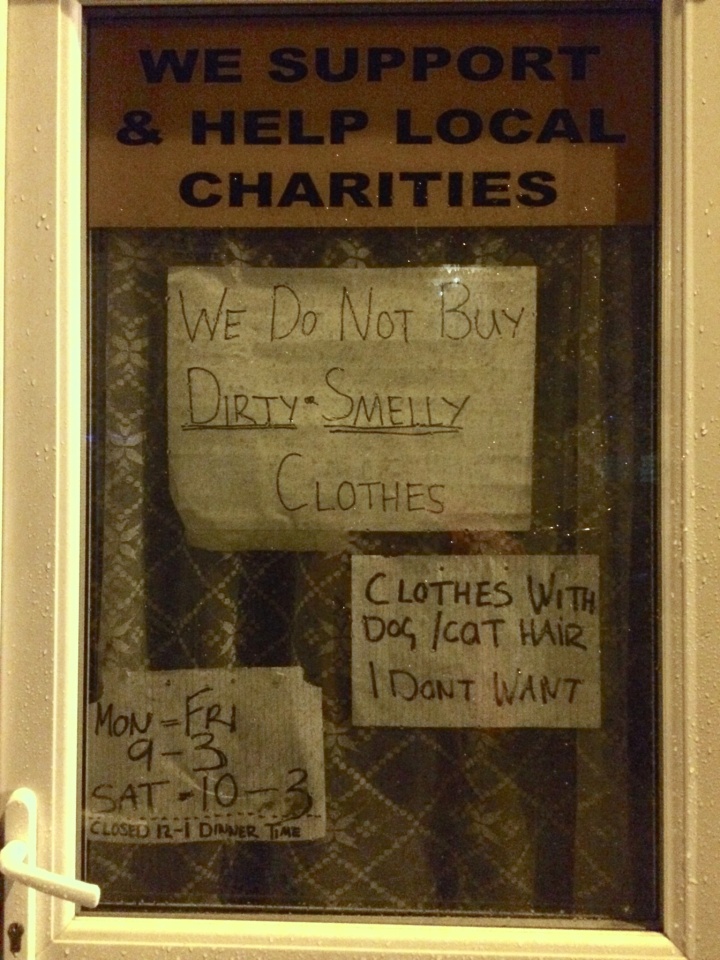 WE SUPPORT
& HELP LOCAL
CHARITIES
WE DO NOT BUY
DIRTY SMELLY
CLOTHES
CLOTHES WITH
DOG /CAT HAIR
I DONT WANT
MON - FRI
9 - 3
SAT - 10 - 3
CLOSED 12-1 DINNER TIME